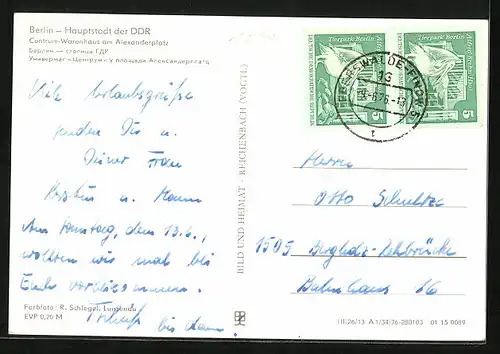 Berlin – Hauptstadt der DDR
Centrum-Warenhaus am Alexanderplatz
Берлин – столица ГДР
Универмаг «Центрум» у площади Александерплатц
Viele Urlaubsgrüße
senden Dir u.
Deiner Frau
u. Mann
Am Samstag, dem 13.6.,
wollten wir mal bei
Euch vorbeikommen.
bis dann!
Farbfoto: R. Schlegel, Lunzenau
EVP 0,20 M
BILD UND HEIMAT · REICHENBACH (VOGTL)
Tierpark Berlin
Tierpark Berlin
DEUTSCHE DEMOKRATISCHE REPUBLIK
5
5
EBERSWALDE-FINOW
13
Herrn
Otto Schultze
1505 Bergholz-Rehbrücke
Bahnhaus 16
III/26/13 A 1/34/76-280103 01 15 0089